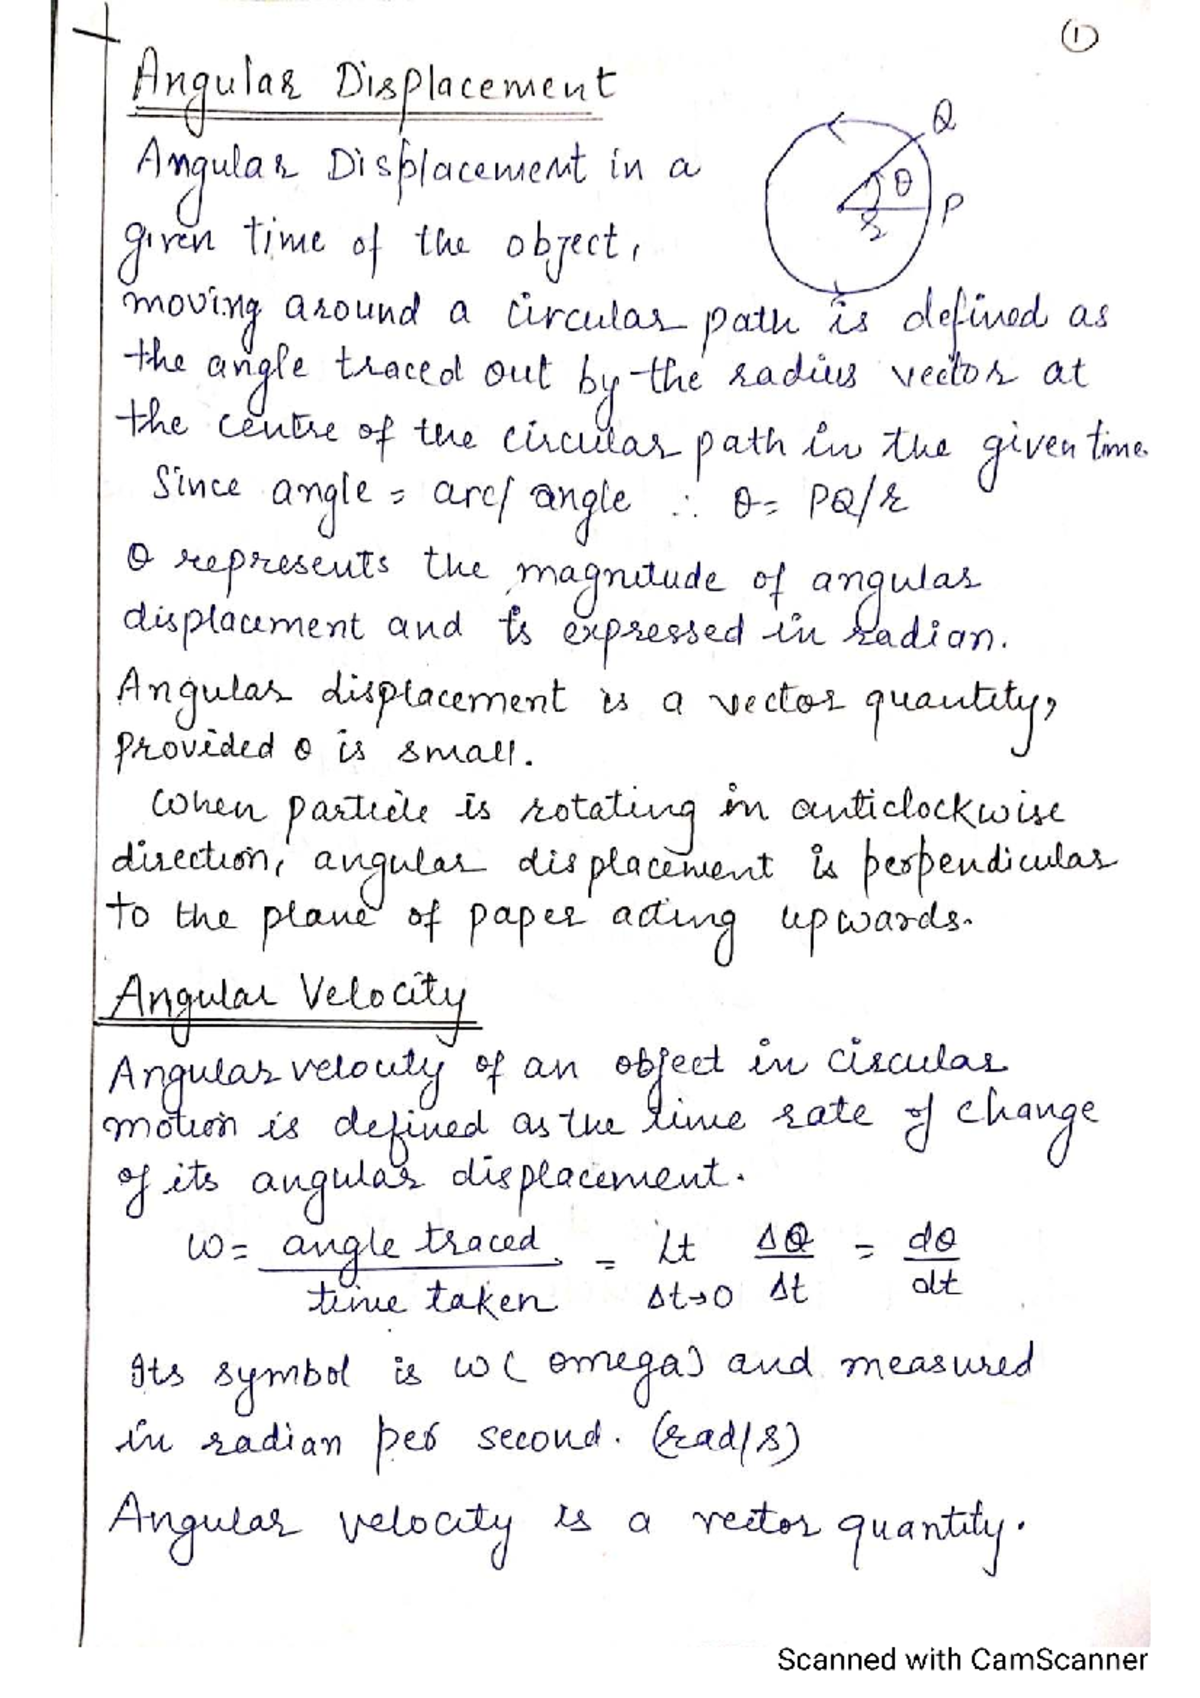 ①
Angular Displacement
Q
θ
P
r
Angular Displacement in a
given time of the object,
moving around a circular path is defined as
the angle traced out by the radius vector at
the centre of the circular path in the given time.
Since angle = arc/ angle ∴ θ = PQ/r
θ represents the magnitude of angular
displacement and is expressed in radian.
Angular displacement is a vector quantity,
provided θ is small.
When particle is rotating in anticlockwise
direction, angular displacement is perpendicular
to the plane of paper acting upwards.
Angular Velocity
Angular velocity of an object in circular
motion is defined as the time rate of change
of its angular displacement.
ω = angle traced / time taken = Lt Δt→0 Δθ/Δt = dθ/dt
Its symbol is ω (omega) and measured
in radian per second. (rad/s)
Angular velocity is a vector quantity.
Scanned with CamScanner